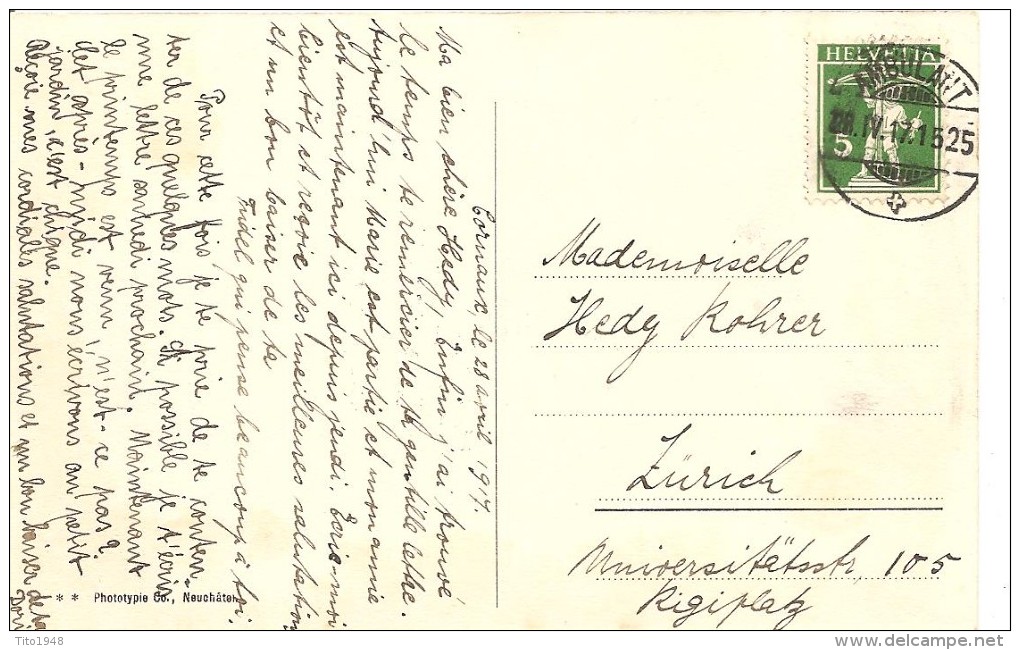 Cornaux, le 28 avril 1917.
Ma bien chère Hedy! Enfin j'ai trouvé
le temps te remercier de ta gentille lettre.
Aujourd'hui Marie est partie et mon amie
est maintenant ici depuis jeudi. Écris-moi
bientôt et reçois les meilleures salutations
et un bon baiser de ta
Fridel qui pense beaucoup à toi.
Pour cette fois je te prie de te conten-
ter de ces quelques mots. Si possible je t'écris
une lettre samedi prochain. Maintenant
le printemps est venu, n'est-ce pas?
Cet après-midi nous écrivons au petit
jardin, c'est chique.
Reçois mes cordiales salutations et un bon baiser de ta
Dori
HELVETIA
5
AMBULANT
28.IV.17.1525
Mademoiselle
Hedy Rohrer
Zürich
Universitätsstr. 105
Rigiplatz
* * Phototypie Co., Neuchâtel
Tito1948
delcampe.net